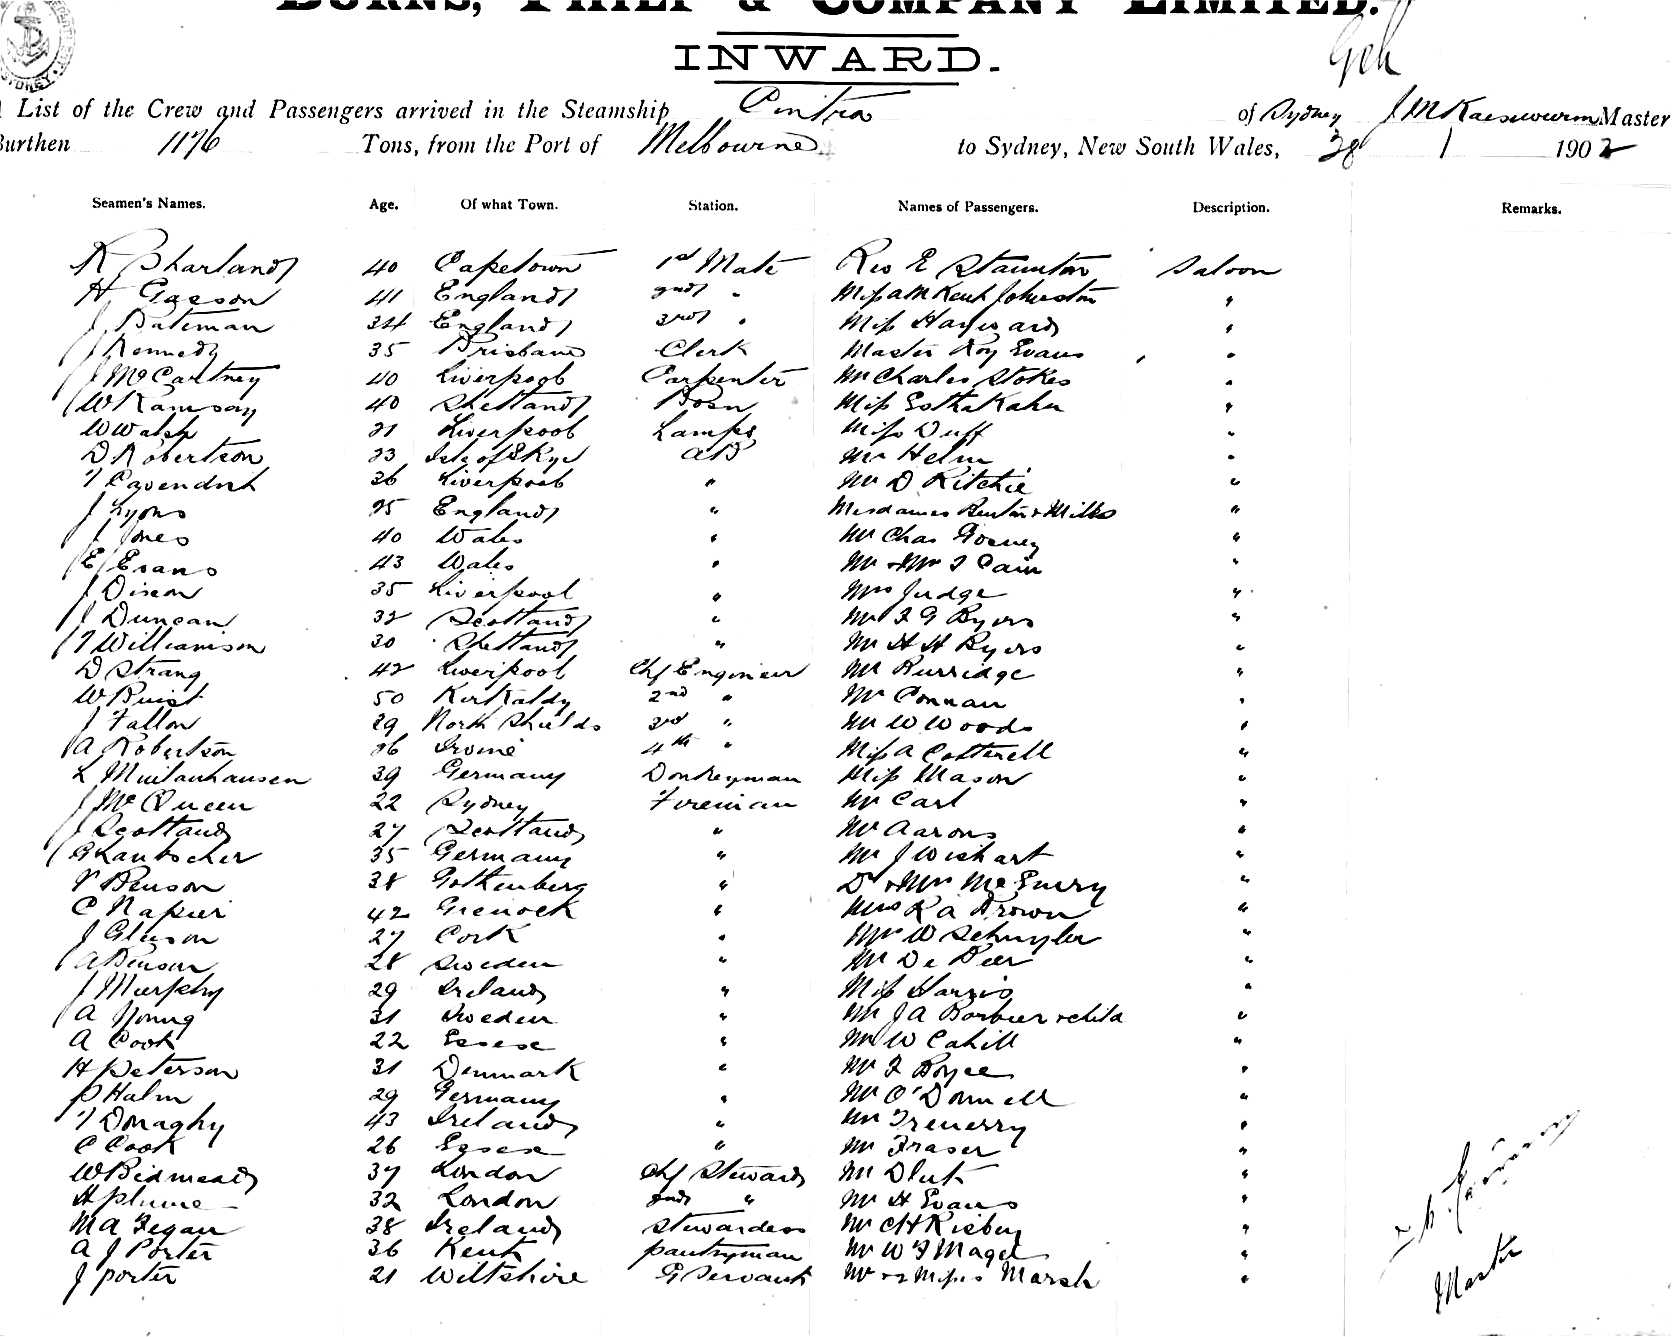 BURNS, PHILP & COMPANY LIMITED.
INWARD.
List of the Crew and Passengers arrived in the Steamship Cintra of Sydney J M Master
Burthen 1176 Tons, from the Port of Melbourne to Sydney, New South Wales, 28 1 1902
Seamen's Names. Age. Of what Town. Station. Names of Passengers. Description. Remarks.
K Sharland 40 Capetown 1st Mate Rev E Staunton Saloon
H Gasson 41 England 2nd " Miss Johnston "
J Bateman 34 England 3rd " Miss Hayward "
J Kennedy 35 Brisbane Clerk Master Roy Evans "
J McCartney 40 Liverpool Carpenter Mr Charles Stokes "
W Ramsay 40 Shetland Bosn Miss "
W Walsh 21 Liverpool Lamps Miss Duff "
D Robertson 33 Isle of Skye AB Mr Helm "
T Cavendish 36 Liverpool " Mr D Ritchie "
J Lyons 25 England " Mesdames & Mills "
J Jones 40 Wales " Mr Chas "
E Evans 43 Wales " Mr & Mrs T Cain "
J Dixon 35 Liverpool " Mrs Judge "
J Duncan 32 Scotland " Mr F G Byers "
T Williamson 30 Shetland " Mr H H Byers "
D Strang 42 Liverpool Chf Engineer Mr Burridge "
W Buist 50 Kirkaldy 2nd " Mr Connan "
J Fallon 29 North Shields 3rd " Mr W Woods "
A Robertson 26 Irvine 4th " Miss A Cotterell "
L 39 Germany Donkeyman Miss Mason "
J McQueen 22 Sydney Fireman Mr Carl "
J Scotland 27 Scotland " Mr Aarons "
G 35 Germany " Mr J Wishart "
Benson 38 Gothenberg " Dr & Mrs McEnery "
C Napier 42 Greenock " Mrs R A Brown "
J Gleeson 27 Cork " Mr W Schuyler "
A Benson 28 Sweden " Mr De Beer "
J Murphy 29 Ireland " Miss Harris "
A Young 31 Sweden " J A Barbier & child "
A Cook 22 Essex " Mr W Cahill "
H Peterson 31 Denmark " Mr F Boyce "
P Halm 29 Germany " Mr O'Donnell "
T Donaghy 43 Ireland " Mr Trenerry "
C Cook 26 Essex " Mr Fraser "
W Bidmead 37 London Chf Steward Mr "
H Plume 32 London 2nd " Mr H Evans "
M A Fegan 38 Ireland Stewardess Mr C H Risbey "
A J Porter 36 Kent Pantryman Mr W F Magee "
J Porter 21 Wiltshire G Servant Mr & 2 Misses Marsh "
Master